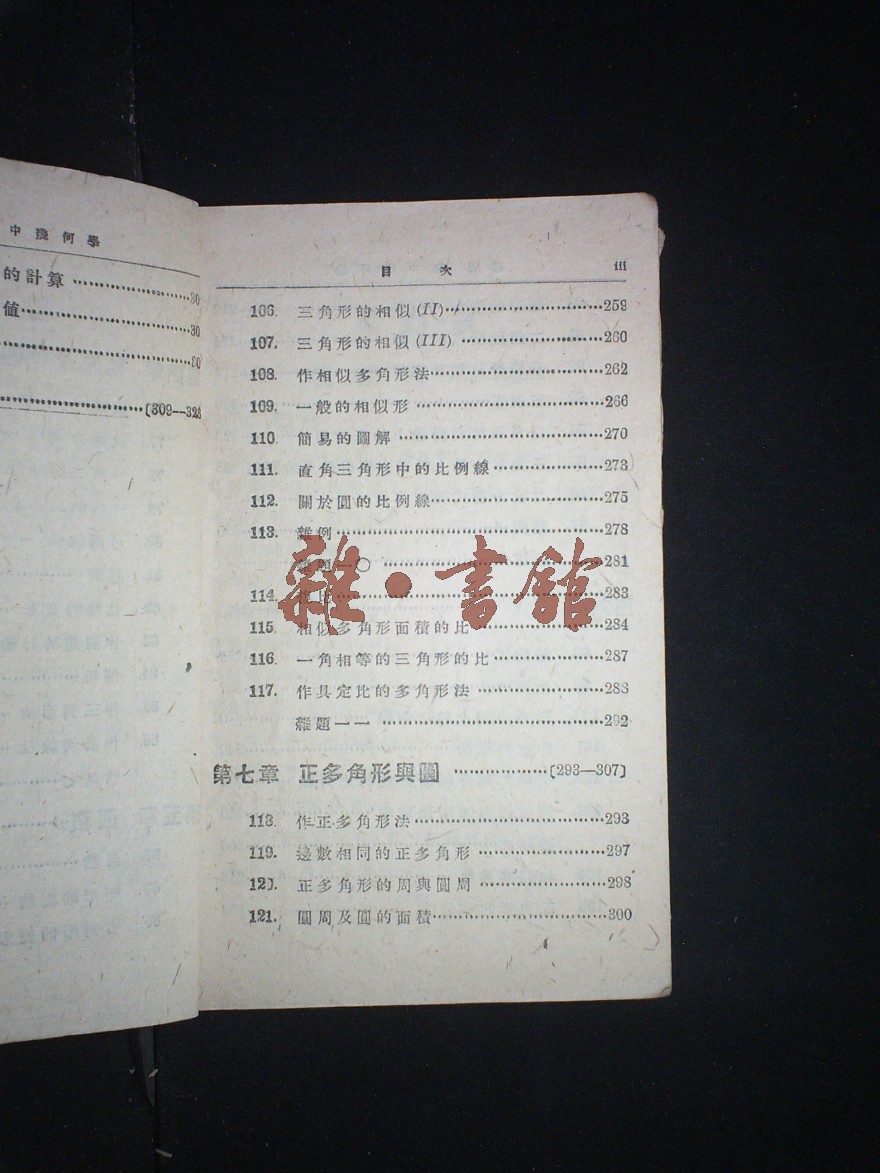 中幾何學
的計算 ……………30
値……………30
……………30
……………〔309—328
目 次 iii
106. 三角形的相似(II)……………259
107. 三角形的相似(III) ……………260
108. 作相似多角形法……………262
109. 一般的相似形 ……………266
110. 簡易的圖解 ……………270
111. 直角三角形中的比例線……………273
112. 關於圓的比例線……………275
113. 雜例……………278
題一〇 ……………281
114. ……………283
115. 相似多角形面積的比……………284
116. 一角相等的三角形的比……………287
117. 作具定比的多角形法……………288
雜題一一 ……………292
雜·書館
第七章 正多角形與圓 ……………〔293—307〕
118. 作正多角形法……………293
119. 邊數相同的正多角形……………297
120. 正多角形的周與圓周……………298
121. 圓周及圓的面積……………300